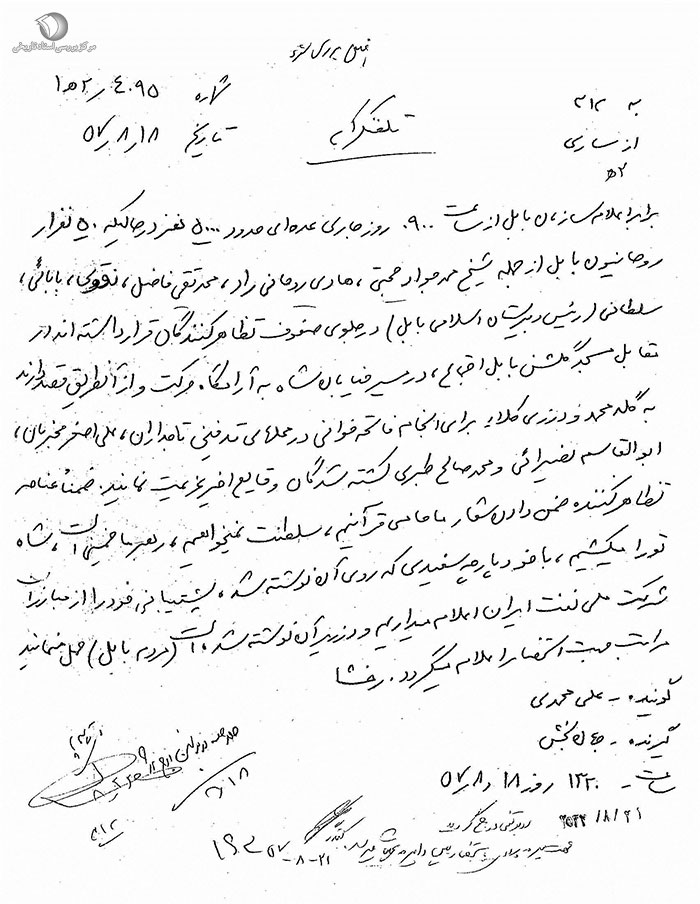 مرکز بررسی اسناد تاریخی
به ۳۱۲
شماره ۴۰۹۵ر۲ه‍۱
از ساری
تلفنگرام
تاریخ ۱۸ر۸ر۵۷
۲ه‍
برابر اعلام سازمان بابل از ساعت ۰۹۰۰ روز جاری عده‌ای حدود ۵۰۰۰ نفر در حالیکه ۵۰ نفر از
روحانیون بابل از جمله شیخ محمد جواد حجتی، هادی روحانی راد، محمد تقی فاضل، نقوی، بابائی،
سلطانی (رئیس دبیرستان اسلامی بابل) در جلوی صفوف تظاهر کنندگان قرار داشته‌اند در
مقابل مسجد گلشن بابل اجتماع، در مسیر خیابان شاه به آرامگاه حرکت و از آنطریق قصد دارند
به گله محمد و درزی کلا برای انجام فاتحه خوانی در محلهای تدفین تاجداران، علی اصغر مخبریان،
ابوالقاسم نصیرائی و محمد صالح طبری کشته شدگان وقایع اخیر عزیمت نمایند. ضمناً عناصر
تظاهر کننده ضمن دادن شعار ما حامی قرآنیم، سلطنت نمیخواهیم، رهبر ما خمینی است، شاه
تو را میکشیم، با خود پارچه سفیدی که روی آن نوشته شده، پشتیبانی خود را از مبارزات
شرکت ملی نفت ایران اعلام میداریم و در زیر آن نوشته شده است (مردم بابل) حمل مینمایند
مراتب جهت استحضار اعلام میگردد. رخشا
گوینده - علی محمدی
گیرنده - جهانبخش
ساعت - ۱۳۲۰ روز ۱۸ر۸ر۵۷
۸/۱۸
۳۱۲
۲۵۳۷/۸/۲۱
۵۷-۸-۲۱